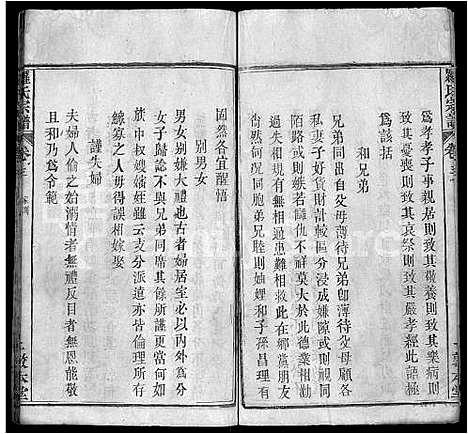 羅氏宗譜
卷三
爲孝孝子事親居則致其敬養則致其樂病則
致其憂喪則致其哀祭則致其嚴孝經此語極
爲該括
和兄弟
兄弟同出自父母薄待兄弟卽薄待父母顧各
私妻子好貨財計較區分浸成嫌隙或則同
陌路甚或則如嫉若讐仇不祥莫大於此德業相勸
過失相規有無相通患難相救此在鄉黨朋友
且然而況於兄弟兄弟睦則妯娌和子孫昌理有
固然各宜醒悟
別男女
男女別嫌大禮也古者婦居室必以內外為分
女子歸諗不與兄弟同席而坐其餘推更當何如
族中叔嫂嬸姪雖云支分派遠亦皆倫理所在
鰥寡之人毋得誤相嫁娶
謹夫婦
夫婦人倫之始溺情者無禮反目者無恩能敬
且和乃爲令範
羅氏宗譜
卷三
家訓
敦本堂
敦本堂